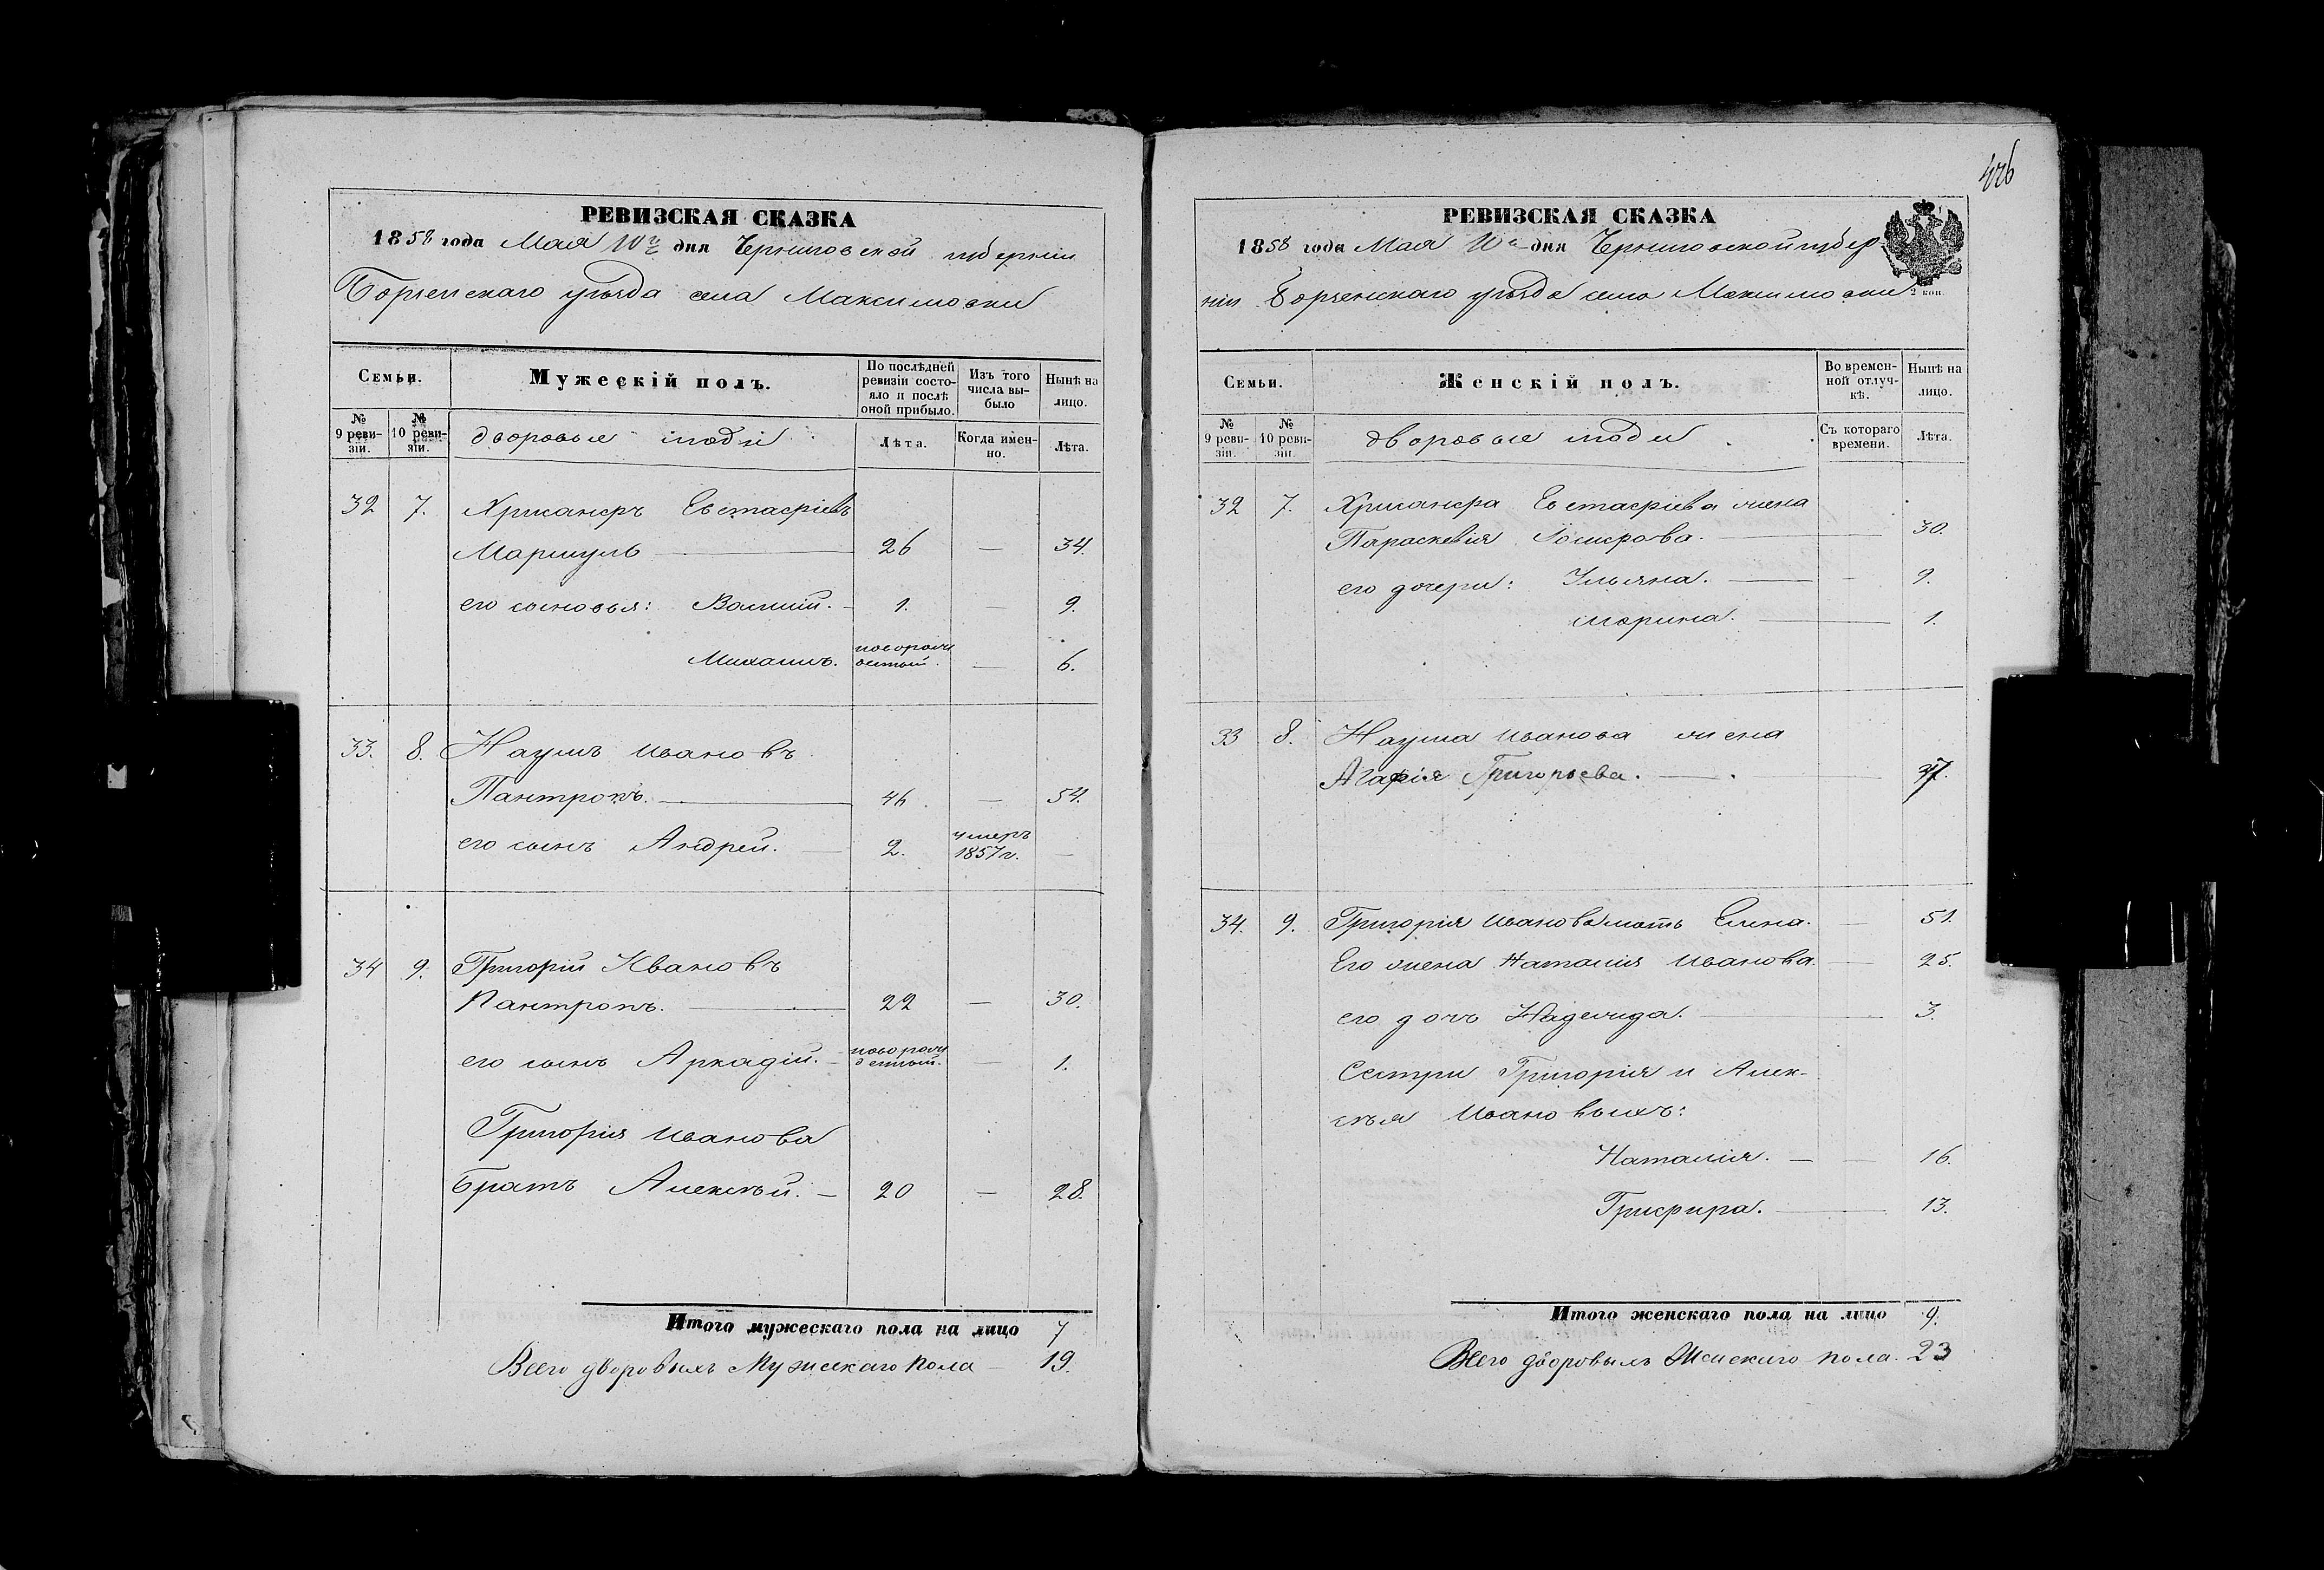 РЕВИЗСКАЯ СКАЗКА
1858 года Мая 10го дня Черниговской губерніи
Борзенскаго уѣзда села Максимовки
Семьи.
Мужескій полъ.
По послѣдней ревизіи состояло и послѣ оной прибыло.
Изъ того числа выбыло
Нынѣ на лицо.
№ 9 ревизіи.
№ 10 ревизіи.
дворовые люди
Лѣта.
Когда именно.
Лѣта.
32 7. Хрисанфъ Евстафіевъ
Маршуль 26 — 34.
его сыновья: Василій. 1. — 9.
Михаилъ. новорожденный. — 6.
33. 8. Наумъ Ивановъ
46. — 54.
его сынъ Андрей. 2. умеръ 1857 г. —
34 9. Григорій Ивановъ
22 — 30.
его сынъ Аркадій. новорожденный. — 1.
Григорія Иванова
братъ Алексѣй. 20 — 28.
Итого мужескаго пола на лицо 7
Всего дворовыхъ Мужескаго пола 19.
426
РЕВИЗСКАЯ СКАЗКА
1858 года Мая 10го дня Черниговской губер-
ніи Борзенскаго уѣзда села Максимовки
2 коп.
Семьи.
Женскій полъ.
Во временной отлучкѣ.
Нынѣ на лицо.
№ 9 ревизіи.
№ 10 ревизіи.
дворовые люди.
Съ котораго времени.
Лѣта.
32 7. Хрисанфа Евстафіева жена
Параскевія 30.
его дочери: Ульяна. — 9.
Марина. 1.
33 8. Наума Иванова жена
Агафія Григорьева. 37.
34. 9. Григорія Иванова мать Елена. — 51.
Его жена Наталія Иванова. — 25.
его дочь Надежда. 3.
Сестры Григорія и Алек-
сѣя Ивановыхъ:
Наталія. — 16.
Глифира. 13.
Итого женскаго пола на лицо 9.
Всего дворовыхъ Женскаго пола. 23